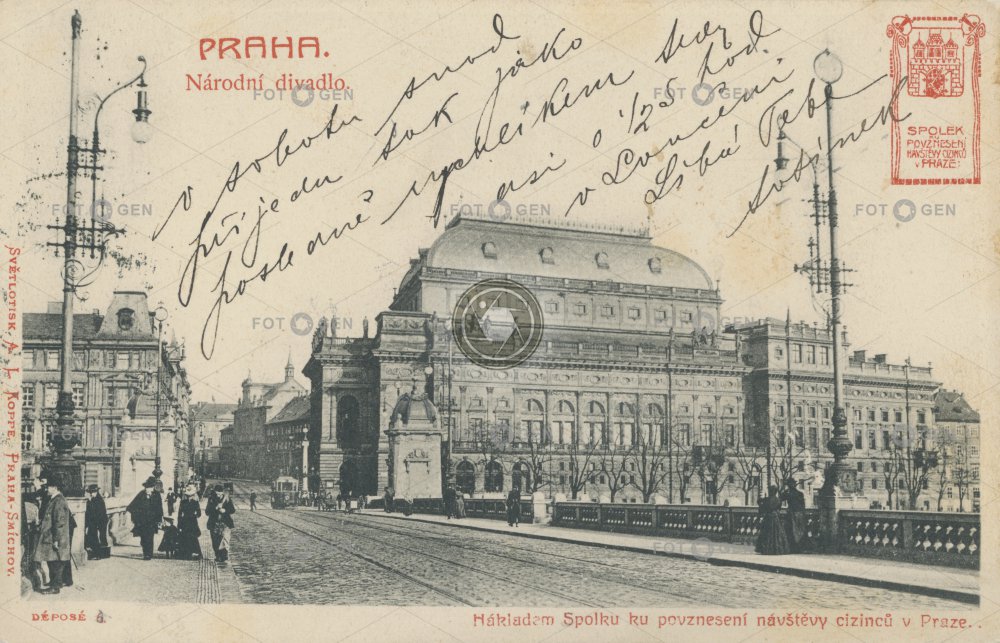 PRAHA.
Národní divadlo.
v sobotu snad
přijedu sok jako
posledně rychlíkem
asi o 1/25 hod.
v Loučení
Líbá Tebe
SPOLEK
KU
POVZNESENÍ
NÁVŠTĚVY CIZINCŮ
V PRAZE
SVĚTLOTISK A. L. KOPPE, PRAHA-SMÍCHOV.
FOTOGEN
FOTOGEN
FOTOGEN
FOTOGEN
FOTOGEN
FOTOGEN
FOTOGEN
FOTOGEN
FOTOGEN
DÉPOSÉ
Nákladem Spolku ku povznesení návštěvy cizinců v Praze.